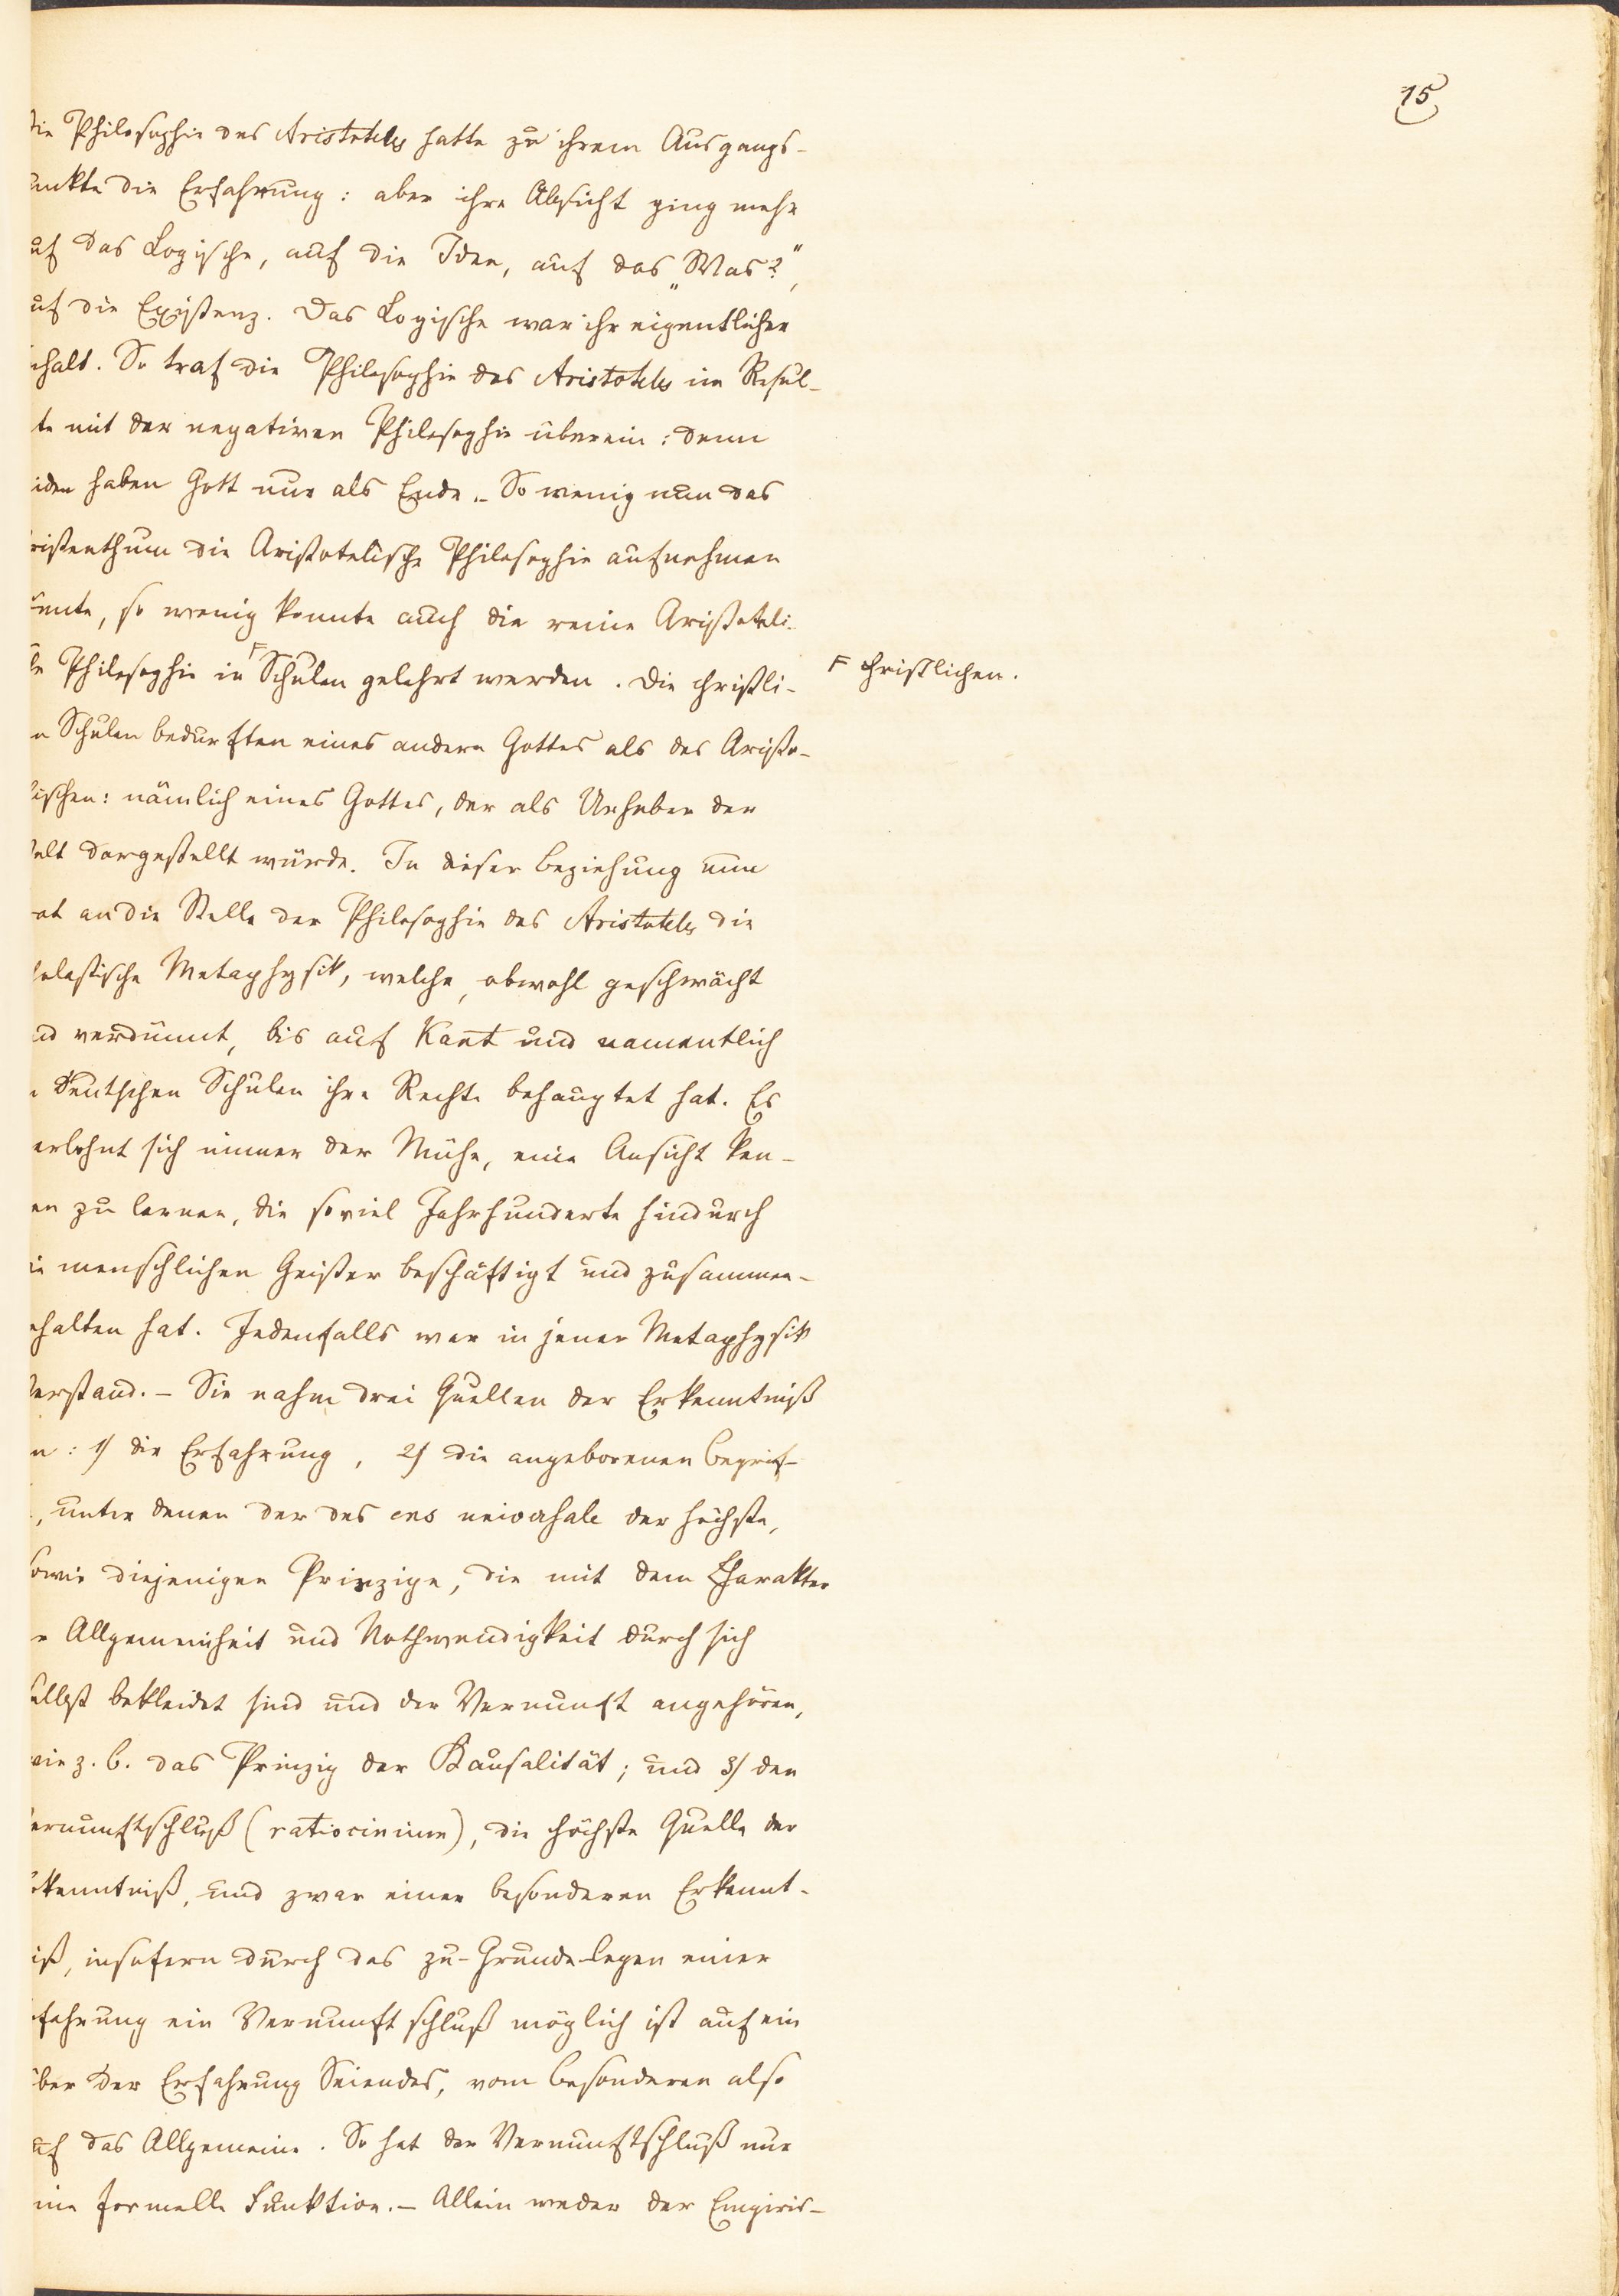 15
die Philosophie des Aristoteles hatte zu ihrem Ausgangs-
unkte die Erfahrung: aber ihre Absicht ging mehr
uf das Logische, auf die Idee, auf das „Was?“,
uf die Existenz. Das Logische war ihr eigentlicher
nhalt. So traf die Philosophie des Aristoteles im Resul-
te mit der negativen Philosophie überein: denn
iden haben Gott nur als Ende. – So wenig nun das
ristenthum die Aristotelische Philosophie aufnehmen
onnte, so wenig konnte auch die reine Aristoteli-
he Philosophie in F Schulen gelehrt werden. Die christli-
F christlichen.
n Schulen bedurften eines andern Gottes als des Aristo-
lischen: nämlich eines Gottes, der als Urheber der
Welt dargestellt würde. In dieser Beziehung nun
rat an die Stelle der Philosophie des Aristoteles die
holastische Metaphysik, welche, obwohl geschwächt
nd verdünnt, bis auf Kant und namentlich
n deutschen Schulen ihre Rechte behauptet hat. Es
erlohnt sich immer der Mühe, eine Ansicht ken-
en zu lernen, die soviel Jahrhunderte hindurch
ie menschlichen Geister beschäftigt und zusammen-
ehalten hat. Jedenfalls war in jener Metaphysik
Verstand. – Sie nahm drei Quellen der Erkenntniß
n: 1) die Erfahrung, 2) die angeborenen Begrif-
, unter denen der des ens universale der höchste,
sowie diejenigen Prinzipe, die mit dem Charakter
r Allgemeinheit und Nothwendigkeit durch sich
selbst bekleidet sind und der Vernunft angehören,
wie z. B. das Prinzip der Kausalität; und 3) den
Vernunftschluß (ratiocinium), die höchste Quelle der
rkenntniß, und zwar einer besonderen Erkennt-
iß, insofern durch das zu-Grunde-legen einer
fahrung ein Vernunftschluß möglich ist auf ein
über der Erfahrung Seiendes, vom Besonderen also
uf das Allgemeine. So hat der Vernunftschluß nur
ine formelle Funktion. – Allein weder der Empiris-